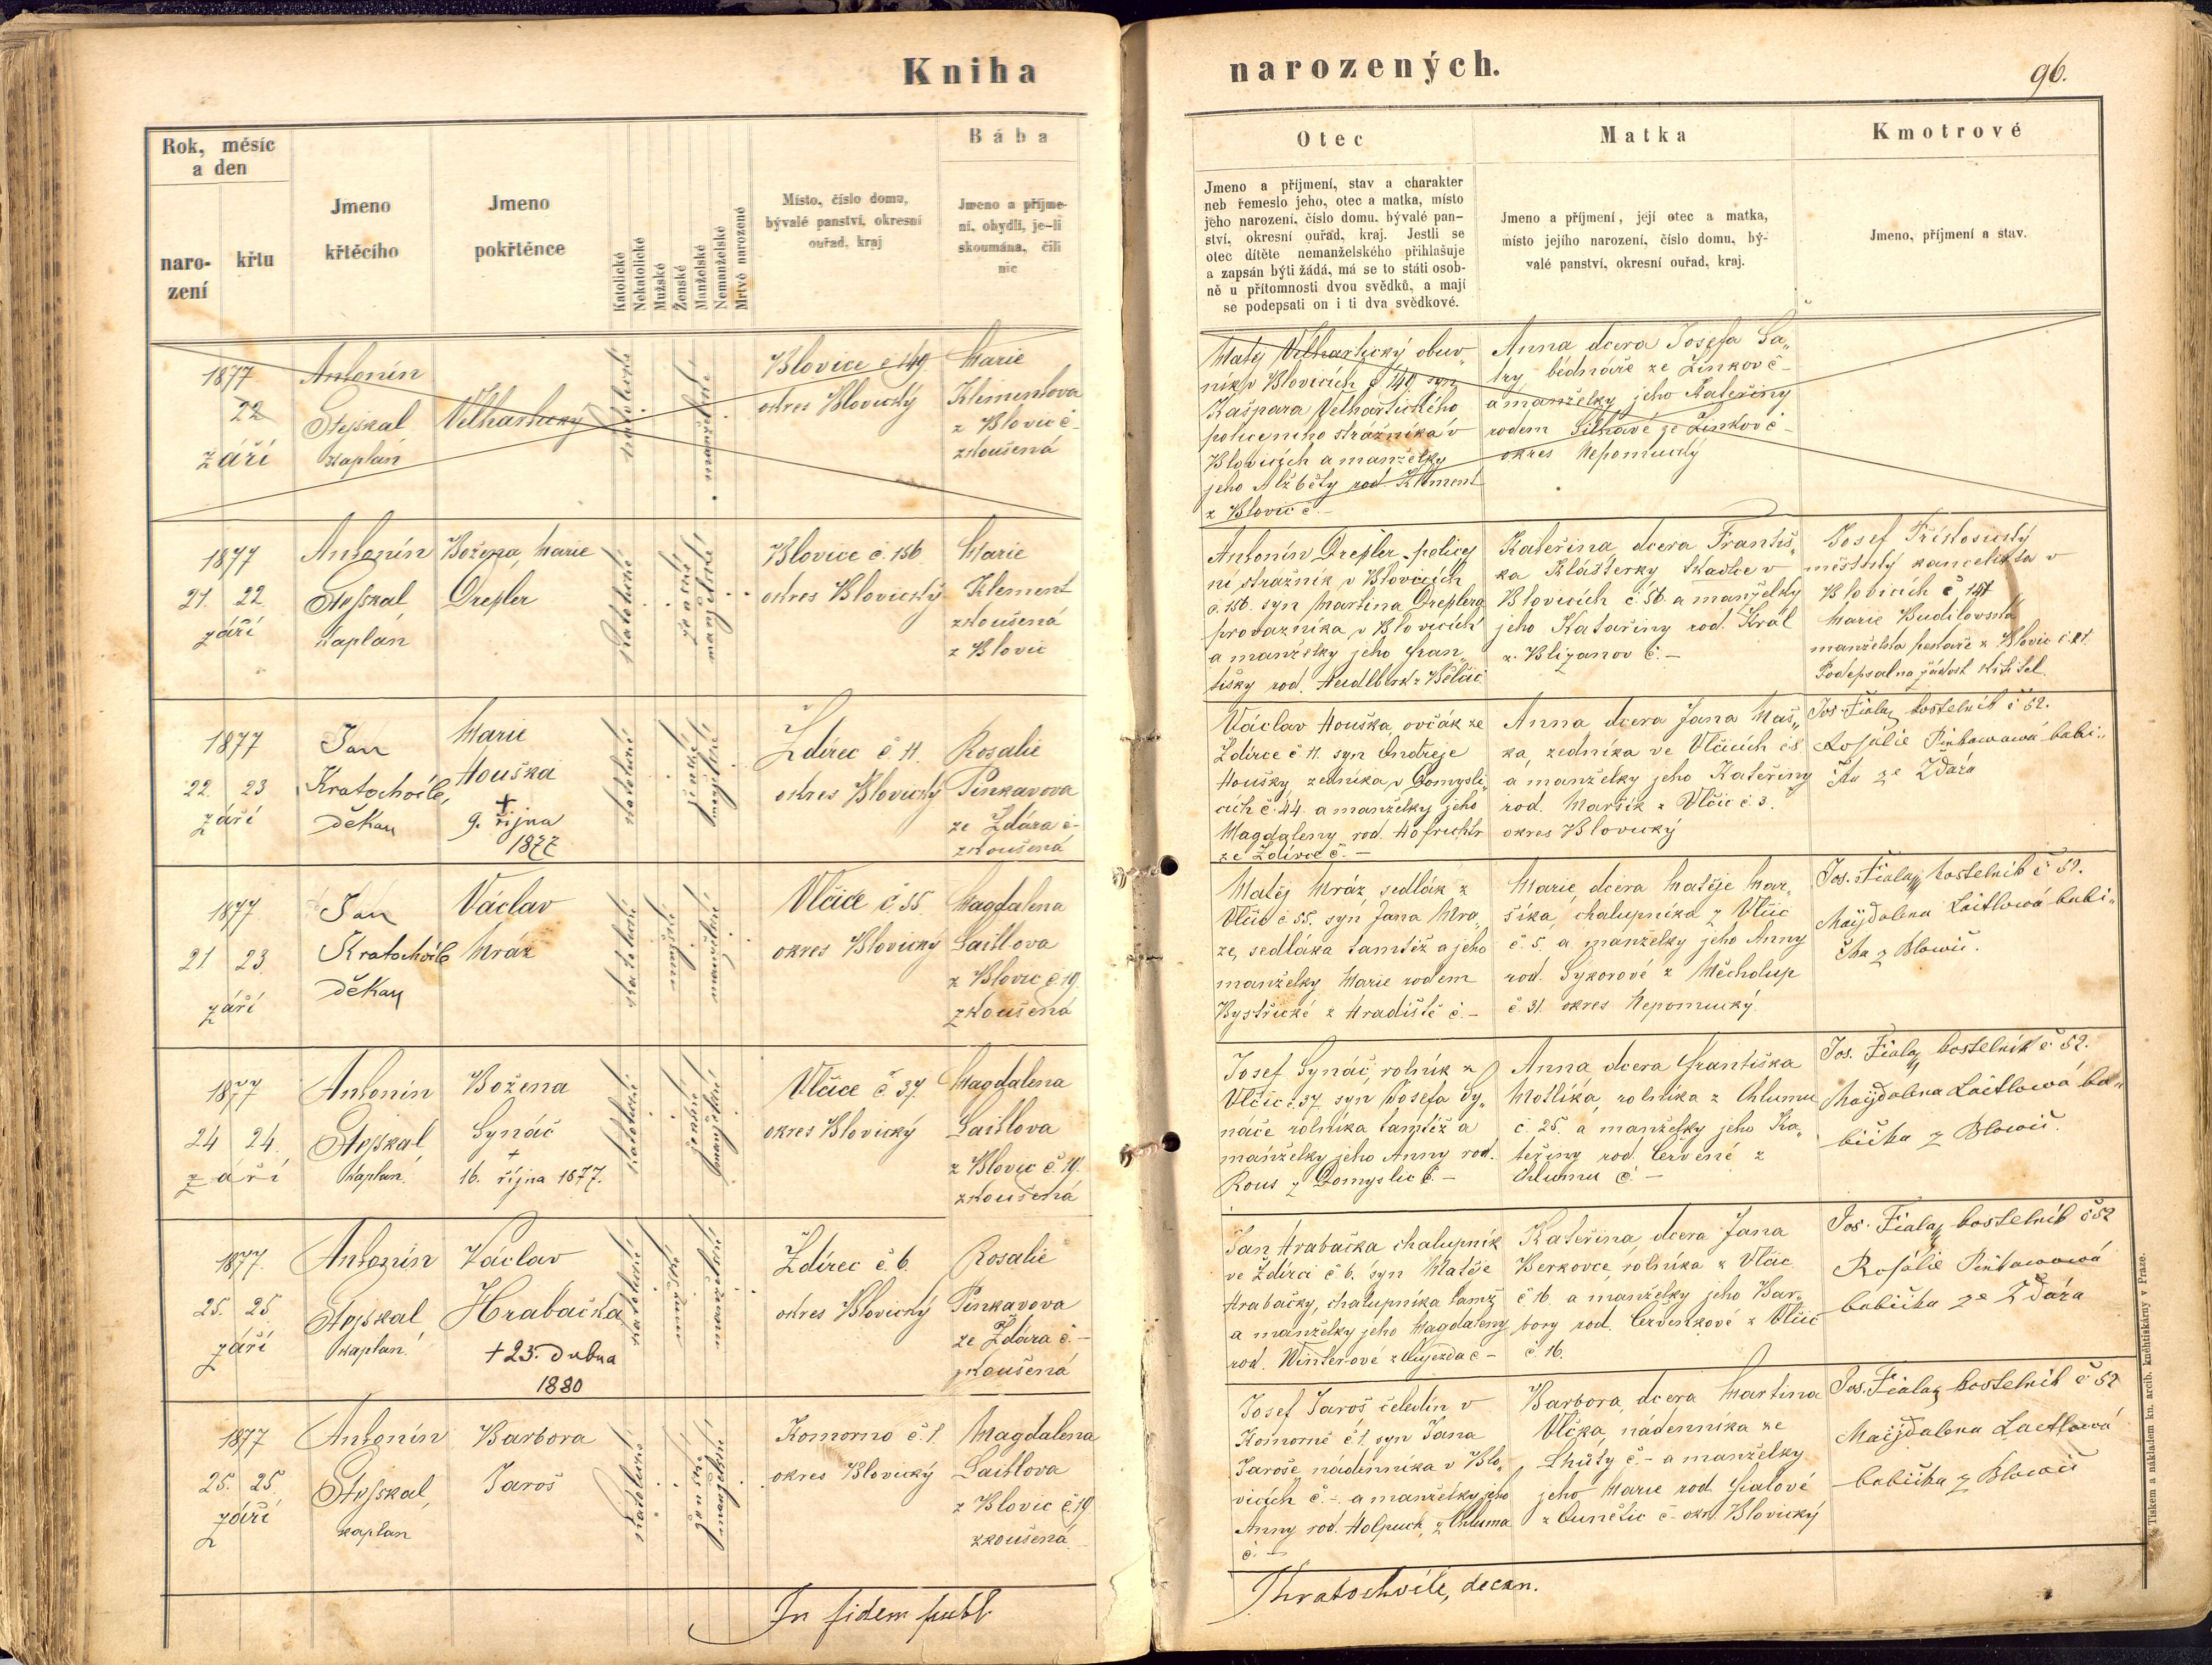 Kniha
narozených.
96.
Rok, měsíc
a den
naro-
zení
křtu
Jmeno
křtěcího
Jmeno
pokřtěnce
Katolické
Nekatolické
Mužské
Ženské
Manželské
Nemanželské
Mrtvě narozené
Místo, číslo domu,
bývalé panství, okresní
ouřad, kraj
Bába
Jmeno a příjme-
ní, obydlí, je-li
skoumána, čili
nic
Otec
Jmeno a příjmení, stav a charakter
neb řemeslo jeho, otec a matka, místo
jeho narození, číslo domu, bývalé pan-
ství, okresní ouřad, kraj. Jestli se
otec dítěte nemanželského přihlašuje
a zapsán býti žádá, má se to státi osob-
ně u přítomnosti dvou svědků, a mají
se podepsati on i ti dva svědkové.
Matka
Jmeno a příjmení, její otec a matka,
místo jejího narození, číslo domu, bý-
valé panství, okresní ouřad, kraj.
Kmotrové
Jmeno, příjmení a stav.
1877
22
září
Antonín
Stejskal
kaplan
Velhartický
katolické
manželské
Blovice č 149
okres Blovický
Marie
Klimentova
z Blovic č -
zkoušená
Matěj Velhartický obuv„
ník v Blovicích č 149. syn
Kašpara Velhartického
policeního strážníka v
Blovicích a manželky
jeho Alžběty rod. Klement
z Blovic č. -
Anna dcera Josefa
bednáře ze Žinkov č -
a manželky jeho Kateřiny
rodem ze Žinkov č -
okres Nepomucký
1877
21. 22
září
Antonín
Stejskal
kaplan
Božena, Marie
Drexler
katolické
ženské
manželské
Blovice č. 156
okres Blovický
Marie
Klement
zkoušená
z Blovic
Antonín Drexler policej
ní strážník v Blovicích
č. 156. syn Martina Drexlera
provazníka v Blovicích
a manželky jeho Fran„
tišky rod. z
Kateřina dcera Františ„
ka Klášterky tkadlce v
Blovicích č. 56. a manželky
jeho Katařiny rod. Král
z Blizanov č. -
Josef
městský kancelista v
Blovicích č 141
Marie Budilovská
manželka z Blovic č. 21.
Podepsal na žádost křtitel.
1877
22. 23
září
Jan
Kratochvíle,
děkan
Marie
Houška
+
9. října
1877
katolické
ženské
manželské
Ždírec č 11.
okres Blovický
Rosalie
Pinkavova
ze Ždára č -
zkoušená
Václav Houška ovčák ze
Ždírce č 11. syn Ondřeje
Houšky, zedníka v Domysli„
cích č. 44. a manželky jeho
Magdaleny rod. Hofrichtr
ze Ždírce č. -
Anna dcera Jana Maš„
ka, zedníka ve Vlčicích č 8
a manželky jeho Kateřiny
rod. Maršík z Vlčic č. 3.
okres Blovický
Jos. Fiala, kostelník č 52.
Rosálie Pinkawowá babi„
čka ze Zdára
1877
21 23
září
Jan
Kratochvíle
děkan
Václav
Mráz
katolické
mužské
manželské
Vlčice č. 55
okres Blovický
Magdalena
Laitlova
z Blovic č. 19.
zkoušená
Matěj Mráz, sedlák z
Vlčic č 55. syn Jana Mrá„
ze, sedláka tamtéž a jeho
manželky Marie rodem
Bystřické z Hradiště č. -
Marie, dcera Matěje Mar„
šíka, chalupníka z Vlčic
č. 5. a manželky jeho Anny
rod. Sykorové z Měcholup
č. 31. okres Nepomucký.
Jos. Fiala, kostelník č 52.
Majdalena Laitlowá babi„
čka z Blowic.
1877
24 24.
září
Antonín
Stejskal,
kaplan.
Božena
Synáč
+
16. října 1877.
katolické
ženské
manželské
Vlčice č. 37.
okres Blovický
Magdalena
Laitlova
z Blovic č. 19.
zkoušená
Josef Synáč, rolník z
Vlčic č. 37 syn Josefa Sy„
náče rolníka tamtéž a
manželky jeho Anny rod.
Rous z Domyslic č. -
Anna dcera Františka
Motlíka, rolníka z Chlumu
č. 25. a manželky jeho Ka„
teřiny rod. Červené z
Chlumu č. -
Jos. Fiala, kostelník č 52.
Majdalena Laitlowá ba„
bička z Blowic.
1877.
25. 25.
září
Antonín
Stejskal
kaplan.
Václav
Hrabačka
+ 23. Dubna
1880
katolické
mužské
manželské
Ždírec č. 6.
okres Blovický
Rosalie
Pinkavova
ze Ždára č. -
zkoušená
Jan Hrabačka chalupník
ve Ždírci č 6. syn Matěje
Hrabačky, chalupníka tamž
a manželky jeho Magdaleny
rod. Winterové z Oujezda č -
Kateřina, dcera Jana
Berkovce, rolníka z Vlčic
č 16. a manželky jeho Bar„
bory rod. Červenkové z Vlčic
č. 16.
Jos. Fiala, kostelník č 52
Rosálie Pinkawowá
babička ze Zdára
1877
25. 25.
září
Antonín
Stejskal,
kaplan
Barbora
Jaroš
katolické
ženské
manželské
Komorno č. 1.
okres Blovický
Magdalena
Laitlova
z Blovic č. 19
zkoušená
Josef Jaroš čeledín v
Komorně č 1. syn Jana
Jaroše nádenníka v Blo„
vicích č. - a manželky jeho
Anny rod. Holpuch z Chluma
č. -
Barbora, dcera Martina
Vlčka, nádenníka ze
Lhůty č. - a manželky
jeho Marie rod. Fialové
z Ounětic č - okr. Blovický
Jos. Fiala, kostelník č 52
Majdalena Laitlowá
babička z Blowic
In fidem publ.
J Kratochvíle, decan.
Tiskem a nákladem kn. arcib. kněhtiskárny v Praze.